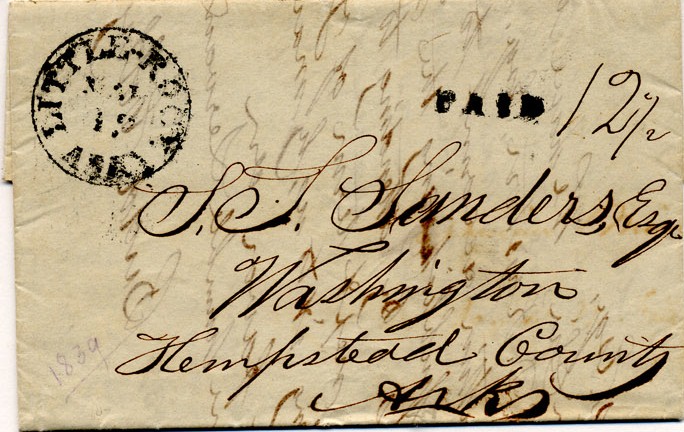 LITTLE-ROCK
19
ARK.
PAID
12½
S. T. Sanders, Esqr
Washington
Hempstead County
Arks
1839